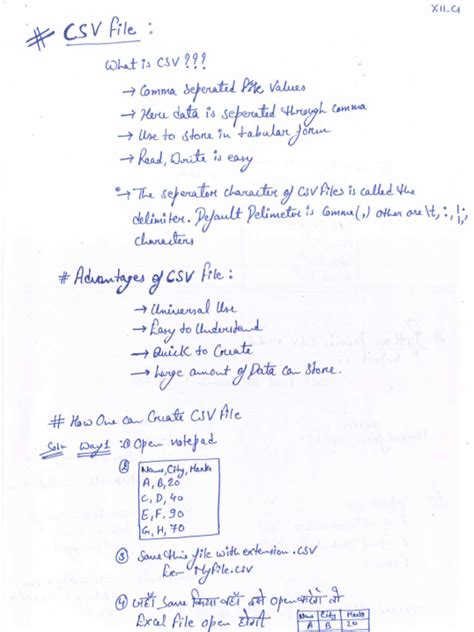 XII-CS
# CSV File :
What is CSV ???
→ Comma Seperated File Values
→ Here data is seperated through comma
→ Use to store in tabular form
→ Read, Write is easy
*→ The seperator character of CSV files is called the
delimiter. Default Delimeter is Comma(,) other are \t, :, |, ;
characters
# Advantages of CSV File :
→ Universal Use
→ Easy to Understand
→ Quick to Create
→ Large amount of Data can Store.
# How One can Create CSV File
Soln Way 1 :① Open notepad
②
Name, City, Marks
A, B, 20
C, D, 40
E, F, 90
G, H, 70
③ Save this file with extension .CSV
Ex:- MyFile.csv
④ जहाँ Save किया वहाँ इसे open करेंगे तो
Excel File open होगी
Name City Marks
A B 20